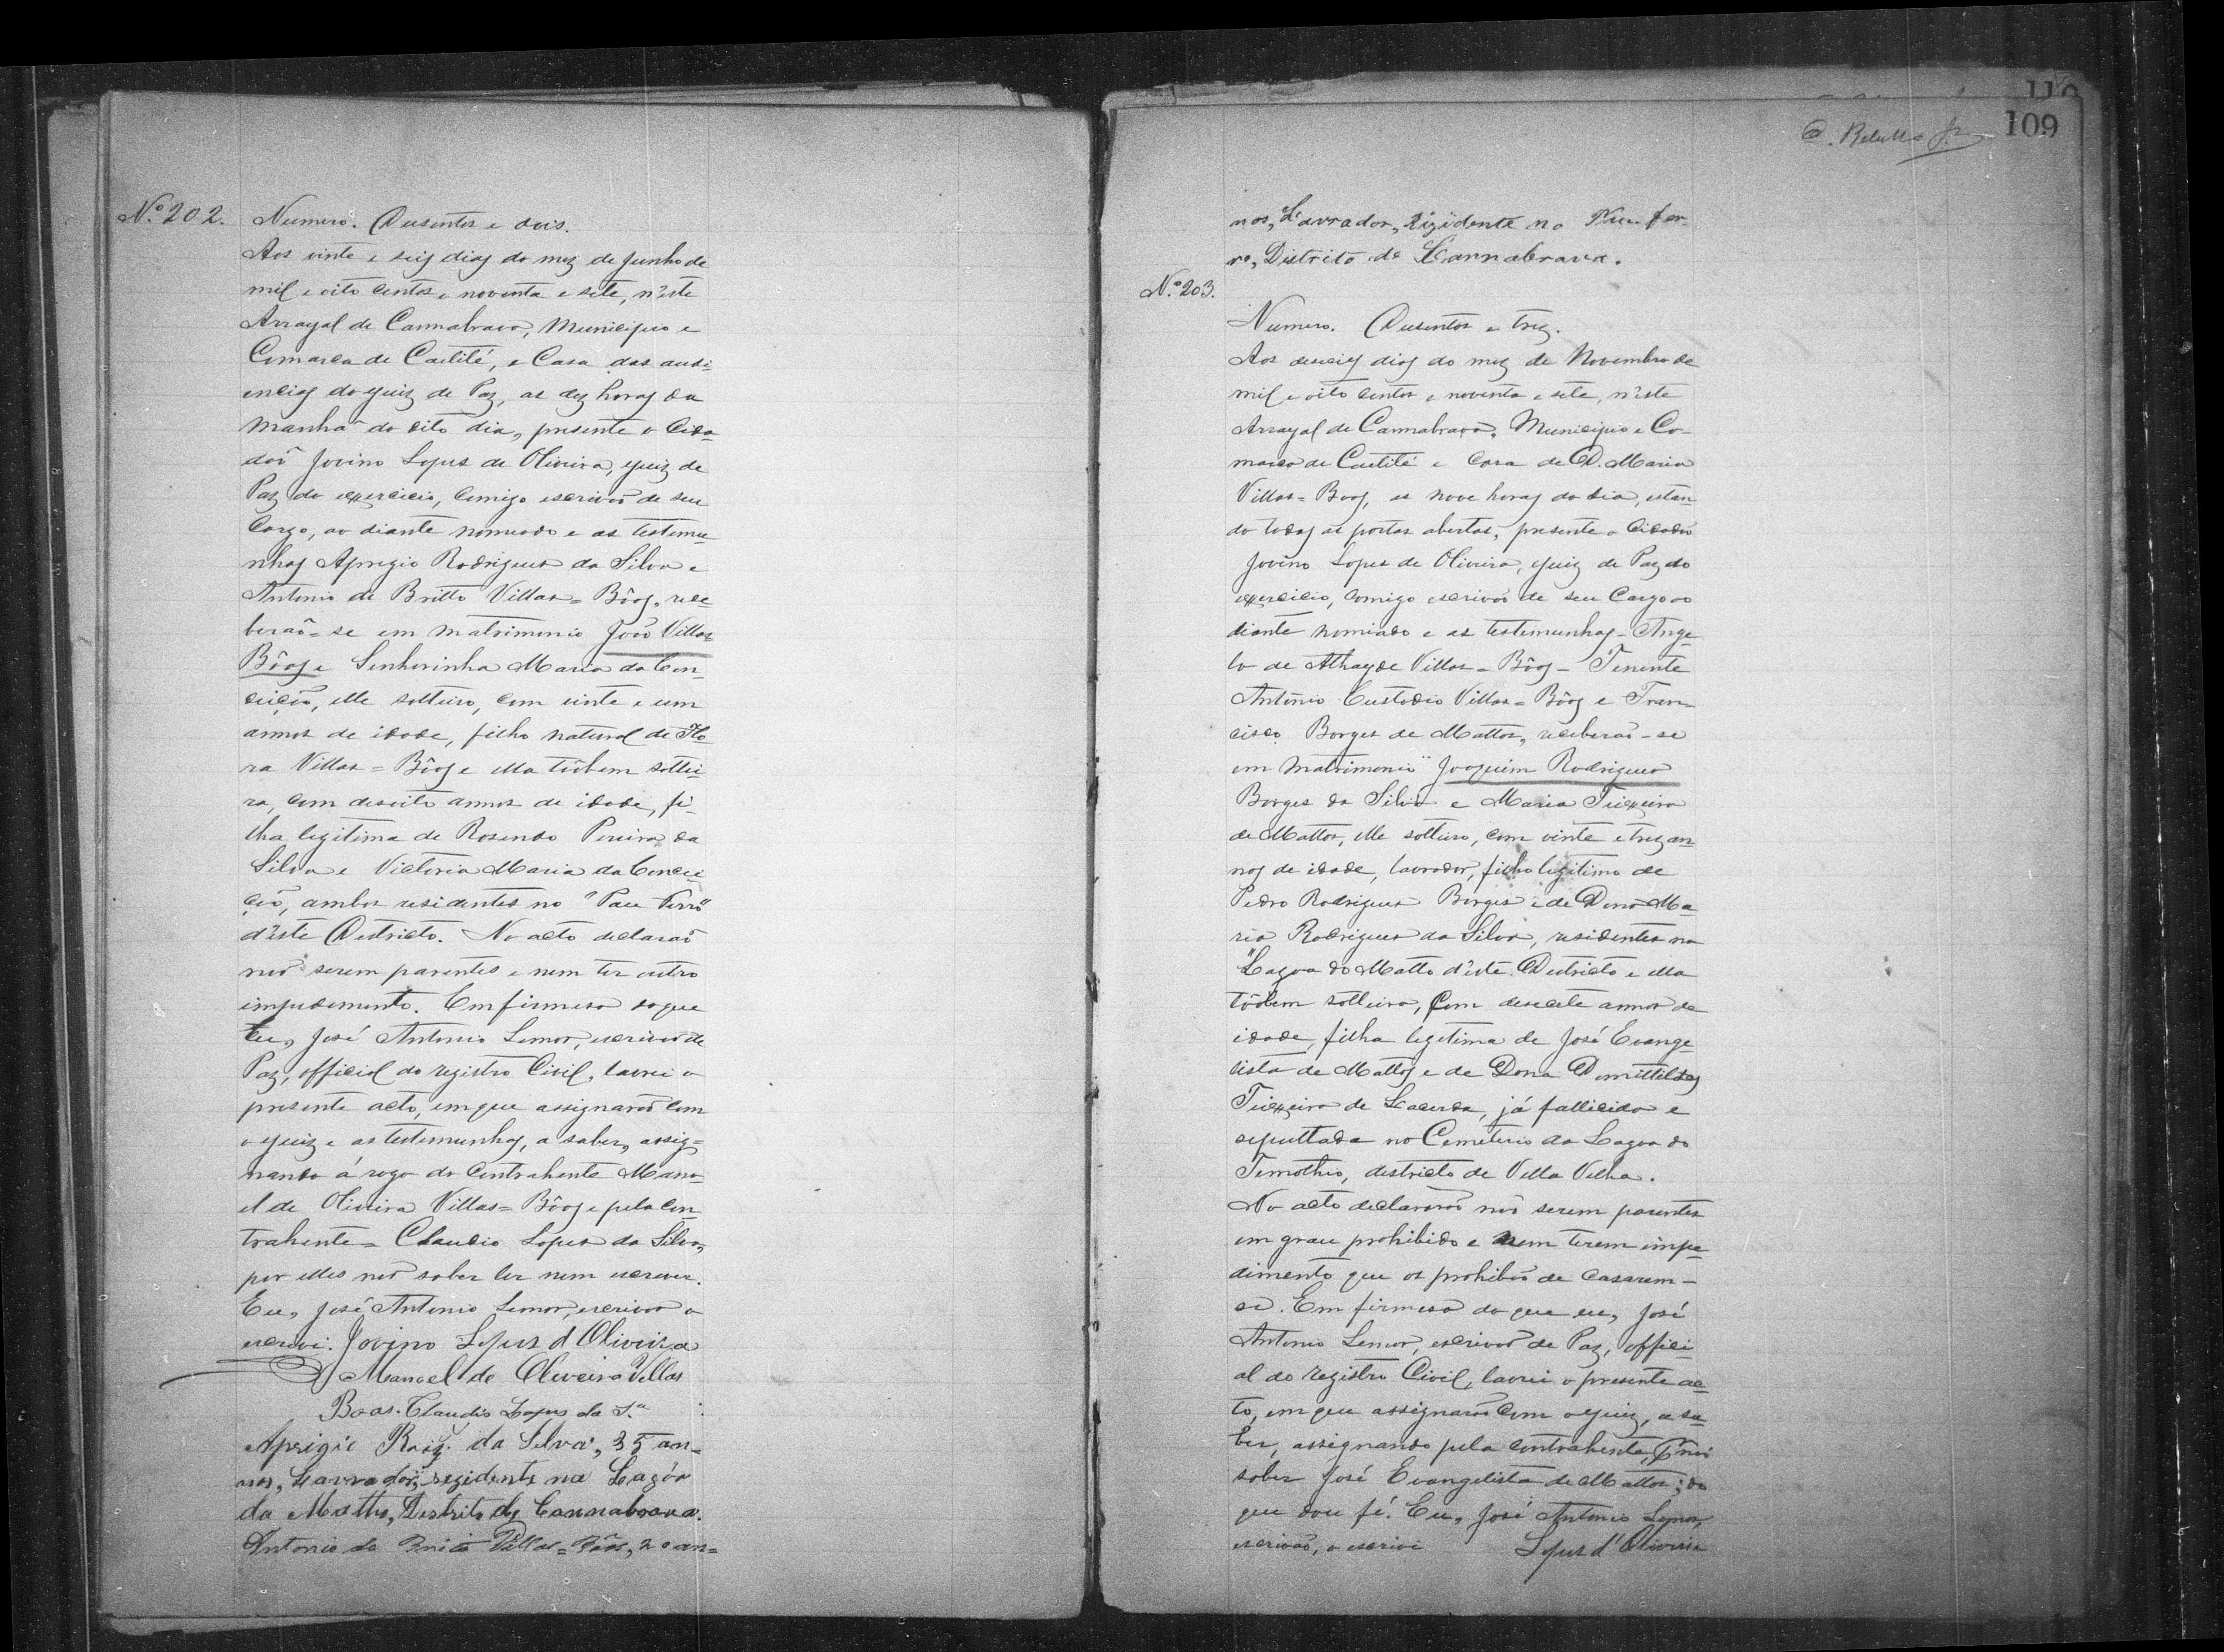 Nº 202.
Numero. Dusentos e dois.
Aos vinte e seis dias do mez de Junho de
mil e oito centos e noventa e sete, n'este
Arrayal de Cannabrava, Municipio e
Comarca de Caetité, e Casa das audi-
encias do Juiz de Paz, as dez horas da
manhã do dito dia, presente o Cida-
dão Jovino Lopes de Oliveira, Juiz de
Paz do exercicio, Comigo escrivão de seu
Cargo, ao diante nomeado e as testemu-
nhas Aprigio Rodrigues da Silva e
Antonio de Britto Villas=Bôas, rece-
berão-se em matrimonio João Villas
Bôas e Senhorinha Maria da Con-
ceição, elle solteiro, com vinte e um
annos de idade, filho natural de Flo-
ra Villas=Bôas e ella tãobem soltei-
ra, com desoito annos de idade, fi-
lha legitima de Rosendo Pereira da
Silva e Victoria Maria da Concei-
ção, ambos residentes no "Pau Ferro"
d'este Destricto. No acto declarão
não serem parentes e nem ter outro
impedimento. Em firmesa do que
Eu, José Antonio Lemos, escrivão de
Paz, official do registro Civil, lavrei o
presente acto, em que assignarão com
o Juiz e as testemunhas, a saber, assig=
nando á rogo do Contrahente Mano-
el de Oliveira Villas=Bôas e pela Con-
trahente= Claudio Lopes da Silva,
por elles não saber ler nem escrever.
Eu, José Antonio Lemos, escrivão o
escrevi. Jovino Lopes d'Oliveira
Manoel de Oliveira Villas
Boas. Claudio Lopes da Sª
Aprigio Roiz. da Silva, 35 an-
nos, Lavrador, rezidente na Lagôa
do Matto, Distrito de Cannabrava.
Antonio de Brito Villas=Bôas, 20 an=
109
nos, Lavrador, rezidente no Pau fer-
ro, Distrito de Cannabrava.
Nº 203.
Numero. Dusentos e trez.
Aos deseseis dias do mez de Novembro de
mil e oito centos e noventa e sete, n'este
Arrayal de Cannabrava, Municipio e Co-
marca de Caetité e Casa de D. Maria
Villas=Boas, as nove horas do dia, estan-
do todas as portas abertas, presente o Cidadão
Jovino Lopes de Oliveira, Juiz de Paz do
exercicio, Comigo escrivão de seu Cargo ao
diante nomiado e as testemunhas- Ange-
lo de Athayde Villas=Bôas- Tenente
Antonio Custodio Villas=Bôas e Fran-
cisco Borges de Mattos, receberão-se
em Matrimonio Joaquim Rodrigues
Borges da Silva e Maria Teixeira
de Mattos, elle solteiro, com vinte e trez an-
nos de idade, lavrador, filho legitimo de
Pedro Rodrigues Borges e de Dona Ma-
ria Rodrigues da Silva, residentes na
"Lagoa do Matto d'este Destricto e ella
tãobem solteira, Com desecete annos de
idade, filha legetima de José Evange-
lista de Mattos e de Dona Domittildes
Teixeira de Lacerda, já fallicida e
sepultada no Cemeterio da Lagoa do
Timotheo, destricto de Villa Velha.
No acto declararão não serem parentes
em grau prohibido e nem terem impe-
dimento que os prohibão de casarem-
se. Em firmesa do que eu, José
Antonio Lemos, escrivão de Paz, offici-
al do registro Civil, lavrei o presente ac-
to, em que assignarão Com o Juiz, a sa-
ber, assignando pela contrahente, p. não
saber José Evangelista de Mattos; do
que dou fé. Eu, José Antonio Lemos,
escrivão, o escrivi Lopes d'Oliveira